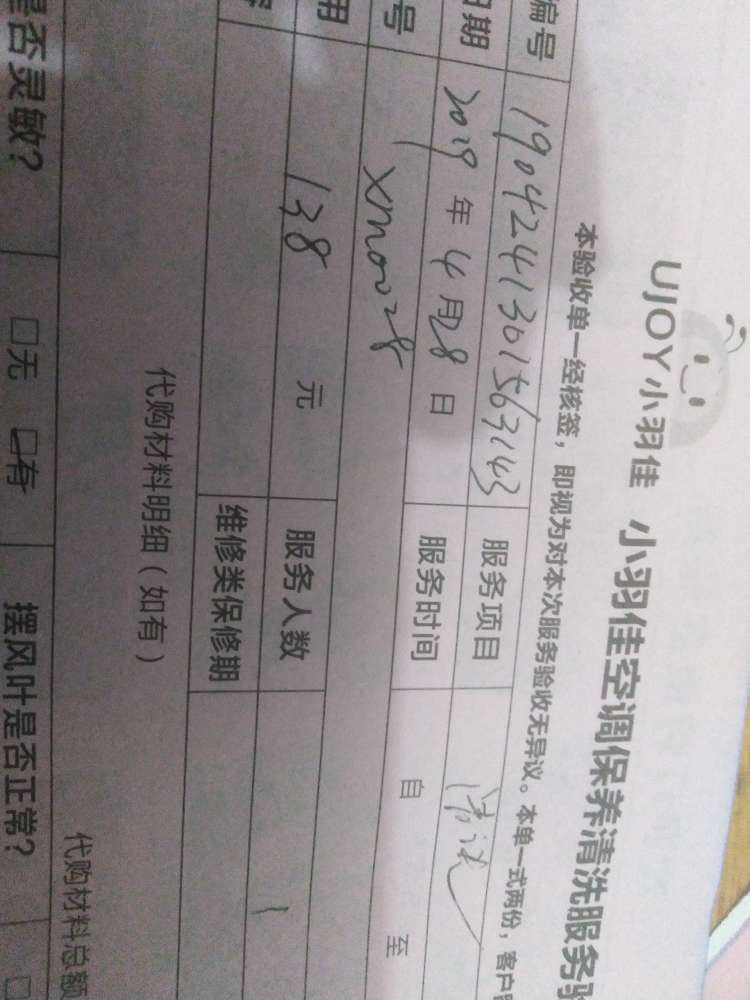 UJOY小羽佳 小羽佳空调保养清洗服务验
本验收单一经核签，即视为对本次服务验收无异议。本单一式两份，客户留
编号 190424130156３143 服务项目 清洗
日期 2019 年 4 月 28 日 服务时间 自 至
号 Xm0028
用 138 元 服务人数 1
维修类保修期
代购材料明细（如有）
代购材料总额
是否灵敏？ □无 □有 摆风叶是否正常？ □